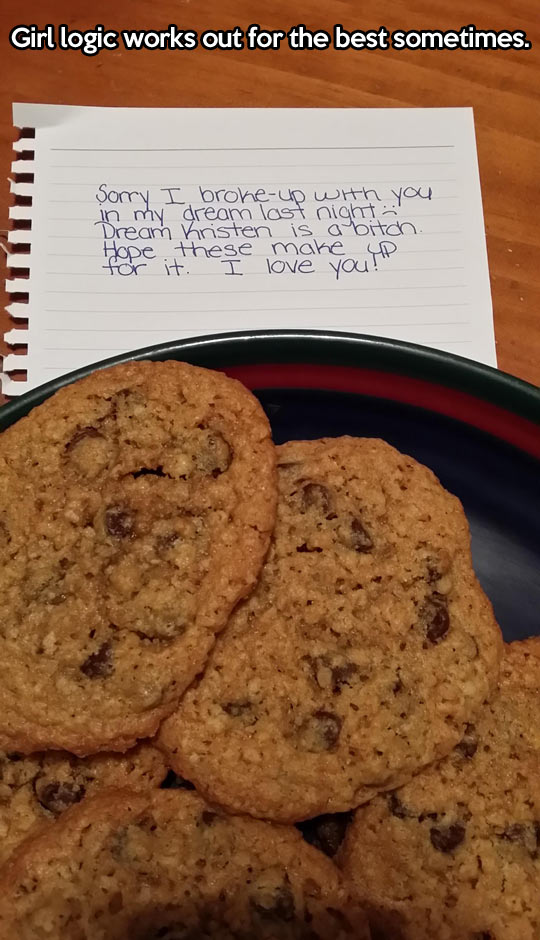 Girl logic works out for the best sometimes.
Sorry I broke-up with you
in my dream last night :(
Dream Kristen is a bitch.
Hope these make up
for it. I love you!